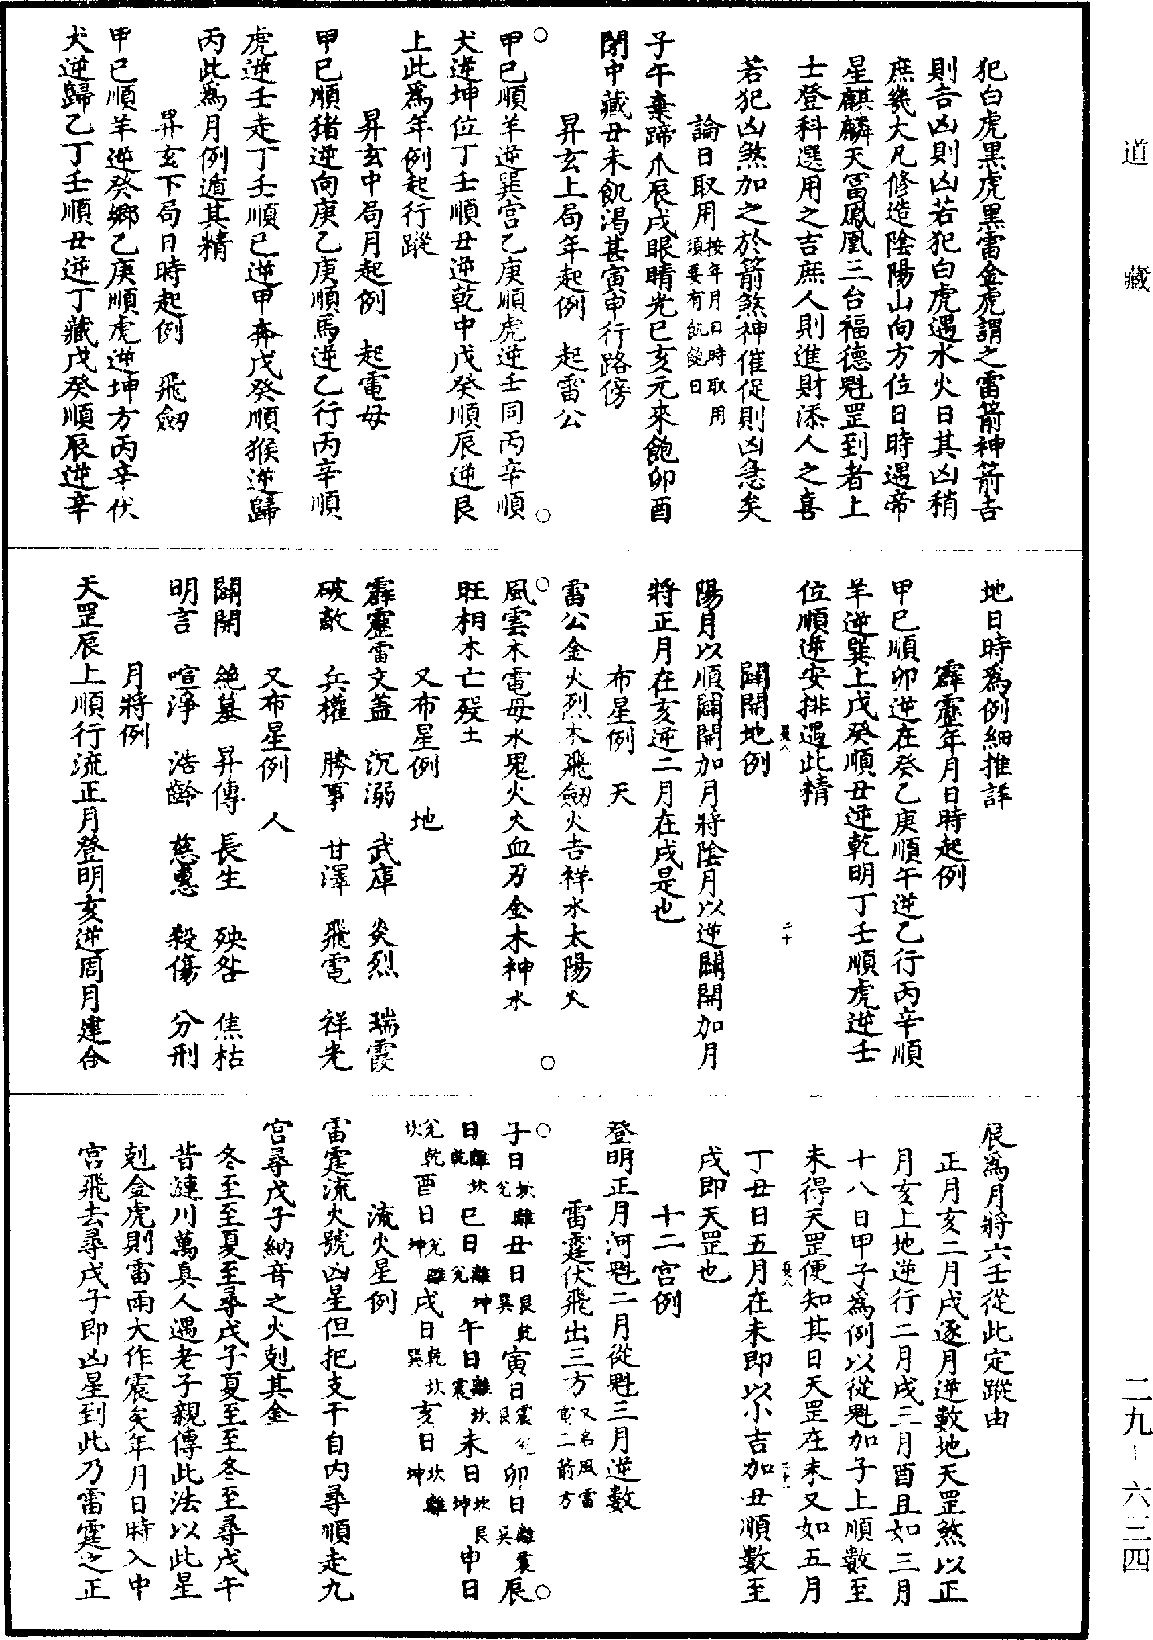 道藏
二九–六三四
犯白虎黑虎黑雷金虎謂之雷箭神箭吉
則吉凶則凶若犯白虎遇水火日其凶稍
庶幾大凡修造陰陽山向方位日時遇帝
星麒麟天富鳳凰三台福德魁罡到者上
士登科選用之吉庶人則進財添人之喜
若犯凶煞加之於箭煞神催促則凶急矣
論日取用按年月日時取用須要有飢饒日
子午棄蹄爪辰戌眼睛光巳亥元來飽卯酉
閉中藏丑未飢渴甚寅申行路傍
昇玄上局年起例　起雷公
甲巳順羊逆巽宫乙庚順虎逆壬同丙辛順
犬逆坤位丁壬順丑逆乾中戊癸順辰逆艮
上此為年例起行蹤
昇玄中局月起例　起電母
甲巳順猪逆向庚乙庚順馬逆乙行丙辛順
虎逆壬走丁壬順巳逆甲奔戊癸順猴逆歸
丙此為月例遁其精
昇玄下局日時起例　飛劒
甲巳順羊逆癸鄉乙庚順虎逆坤方丙辛伏
犬逆歸乙丁壬順丑逆丁藏戊癸順辰逆辛
地日時為例細推詳
霹靂年月日時起例
甲巳順卯逆在癸乙庚順午逆乙行丙辛順
羊逆巽上戊癸順丑逆乾明丁壬順虎逆壬
位順逆安排遇此精
闢開地例
陽月以順闢開加月將陰月以逆闢開加月
將正月在亥逆二月在戌是也
布星例　天
雷公金火烈木飛劒火吉祥水太陽火
風雲木電母水鬼火大血刃金木神水
旺相木亡殁土
又布星例　地
霹靂雷文蓋　沉溺　武庫　炎烈　瑞霞
破敵　兵權　勝事　甘澤　飛電　祥光
又布星例　人
闢開　絶墓　昇傳　長生　殃咎　焦枯
明言　喧淨　浩齡　慈惠　殺傷　分刑
月將例
天罡辰上順行流正月登明亥逆周月建合
辰為月將六壬從此定蹤由
正月亥二月戌逐月逆數地天罡煞以正
月亥上地逆行二月戌三月酉且如三月
十八日甲子為例以從魁加子上順數至
未得天罡便知其日天罡在未又如五月
丁丑日五月在未即以小吉加丑順數至
戌即天罡也
十二宫例
登明正月河魁二月從魁三月逆數
雷霆伏飛出三方又名風雷電二箭方
子日坎離兌丑日艮乾巽寅日震兌艮卯日離震巽辰
日離坎乾巳日離坤兌午日離坎震未日坎坤艮申日
兌乾坎酉日兌離坤戌日乾坎巽亥日坎離坤
流火星例
雷霆流火號凶星但把支干自内尋順走九
宫尋戊子納音之火剋其金
冬至至夏至尋戊子夏至至冬至尋戊午
昔漣川萬真人遇老子親傳此法以此星
剋金虎則雷雨大作震矣年月日時入中
宫飛去尋戊子即凶星到此乃雷霆之正